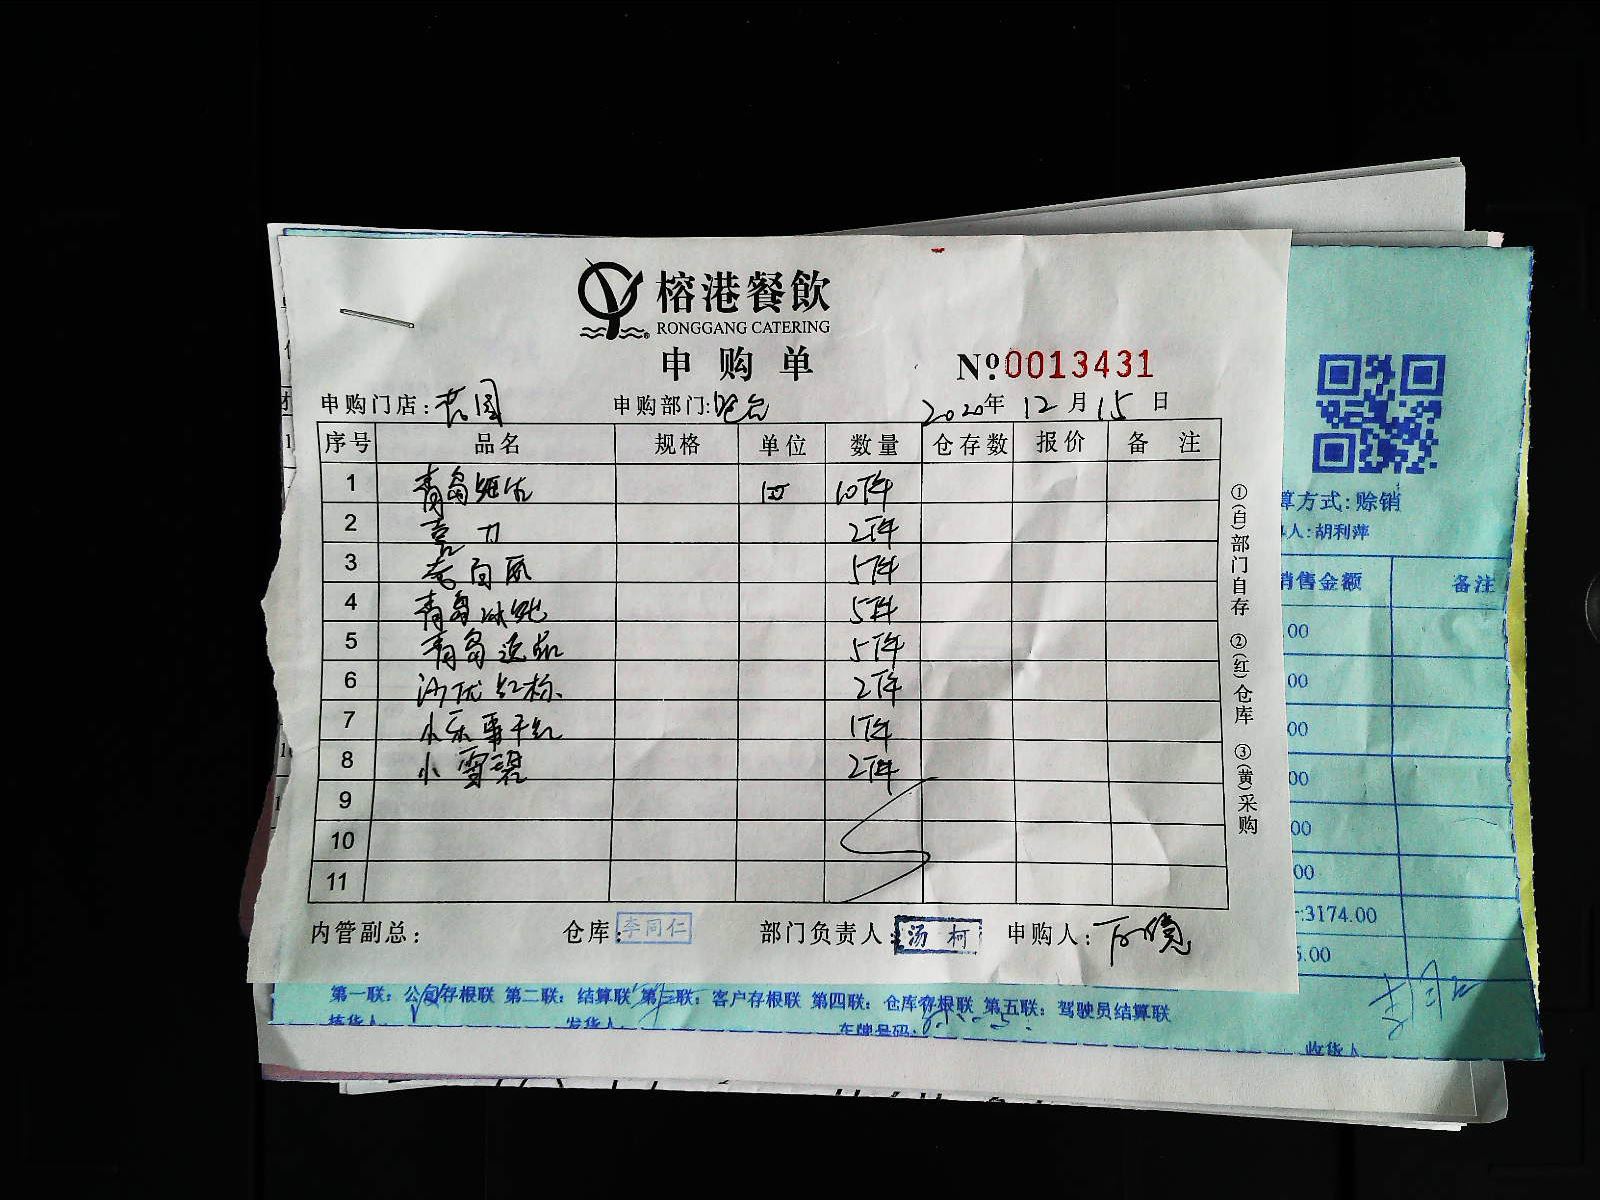 榕港餐飲
RONGGANG CATERING
申购单 Nº0013431
申购门店: 申购部门:吧台 2020年12月15日
序号 品名 规格 单位 数量 仓存数 报价 备注
1 青岛 10件
2 喜力 2件
3 百威 5件
4 青岛冰纯 5件
5 青岛逸品 5件
6 沙优红标 2件
7 小乐事干红 1件
8 小雪碧 2件
9
10
11
内管副总: 仓库:李同仁 部门负责人 汤柯 申购人:
①(白)部门自存 ②(红)仓库 ③(黄)采购
算方式:赊销
人:胡利萍
销售金额 备注
.00
.00
.00
.00
.00
.00
:3174.00
.00
第一联: 公司存根联 第二联: 结算联 第三联: 客户存根联 第四联: 仓库存根联 第五联: 驾驶员结算联
发货人 车牌号码: 收货人